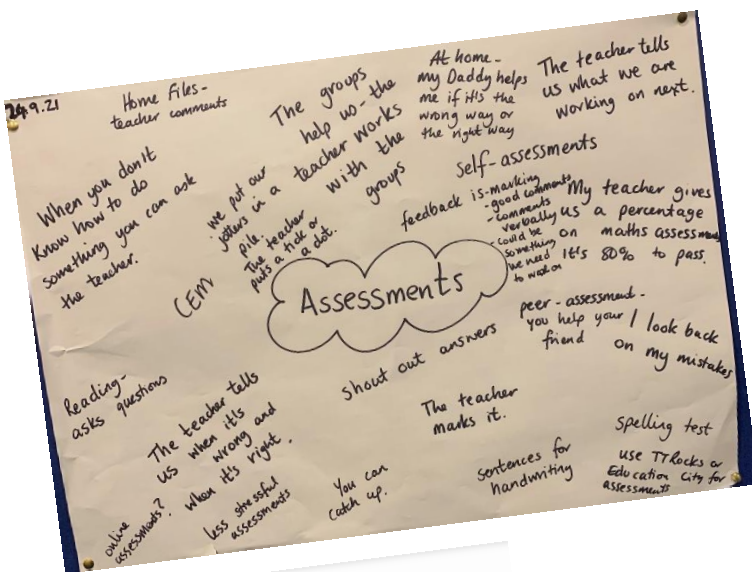 24.9.21
Home Files-
teacher comments
The groups
help us - the
teacher works
with the
groups
At home-
my Daddy helps
me if it's the
wrong way or
the right way
The teacher tells
us what we are
working on next.
When you don't
know how to do
something you can ask
the teacher.
we put our
jotters in a
pile.
The teacher
puts a tick or
a dot.
Self-assessments
feedback is -marking
-good comments
-comments
verbally
-could be
something
we need
to work on
My teacher gives
us a percentage
on maths assessments
It's 80% to pass.
CEM
Assessments
peer-assessment-
you help your
friend
I look back
on my mistakes
Reading-
asks questions
The teacher tells
us when it's
wrong and
when it's right.
shout out answers
The teacher
marks it.
Spelling test
use TTRocks or
Education City for
assessments
sentences for
handwriting
You can
catch up.
less stressful
assessments
online
assessments?